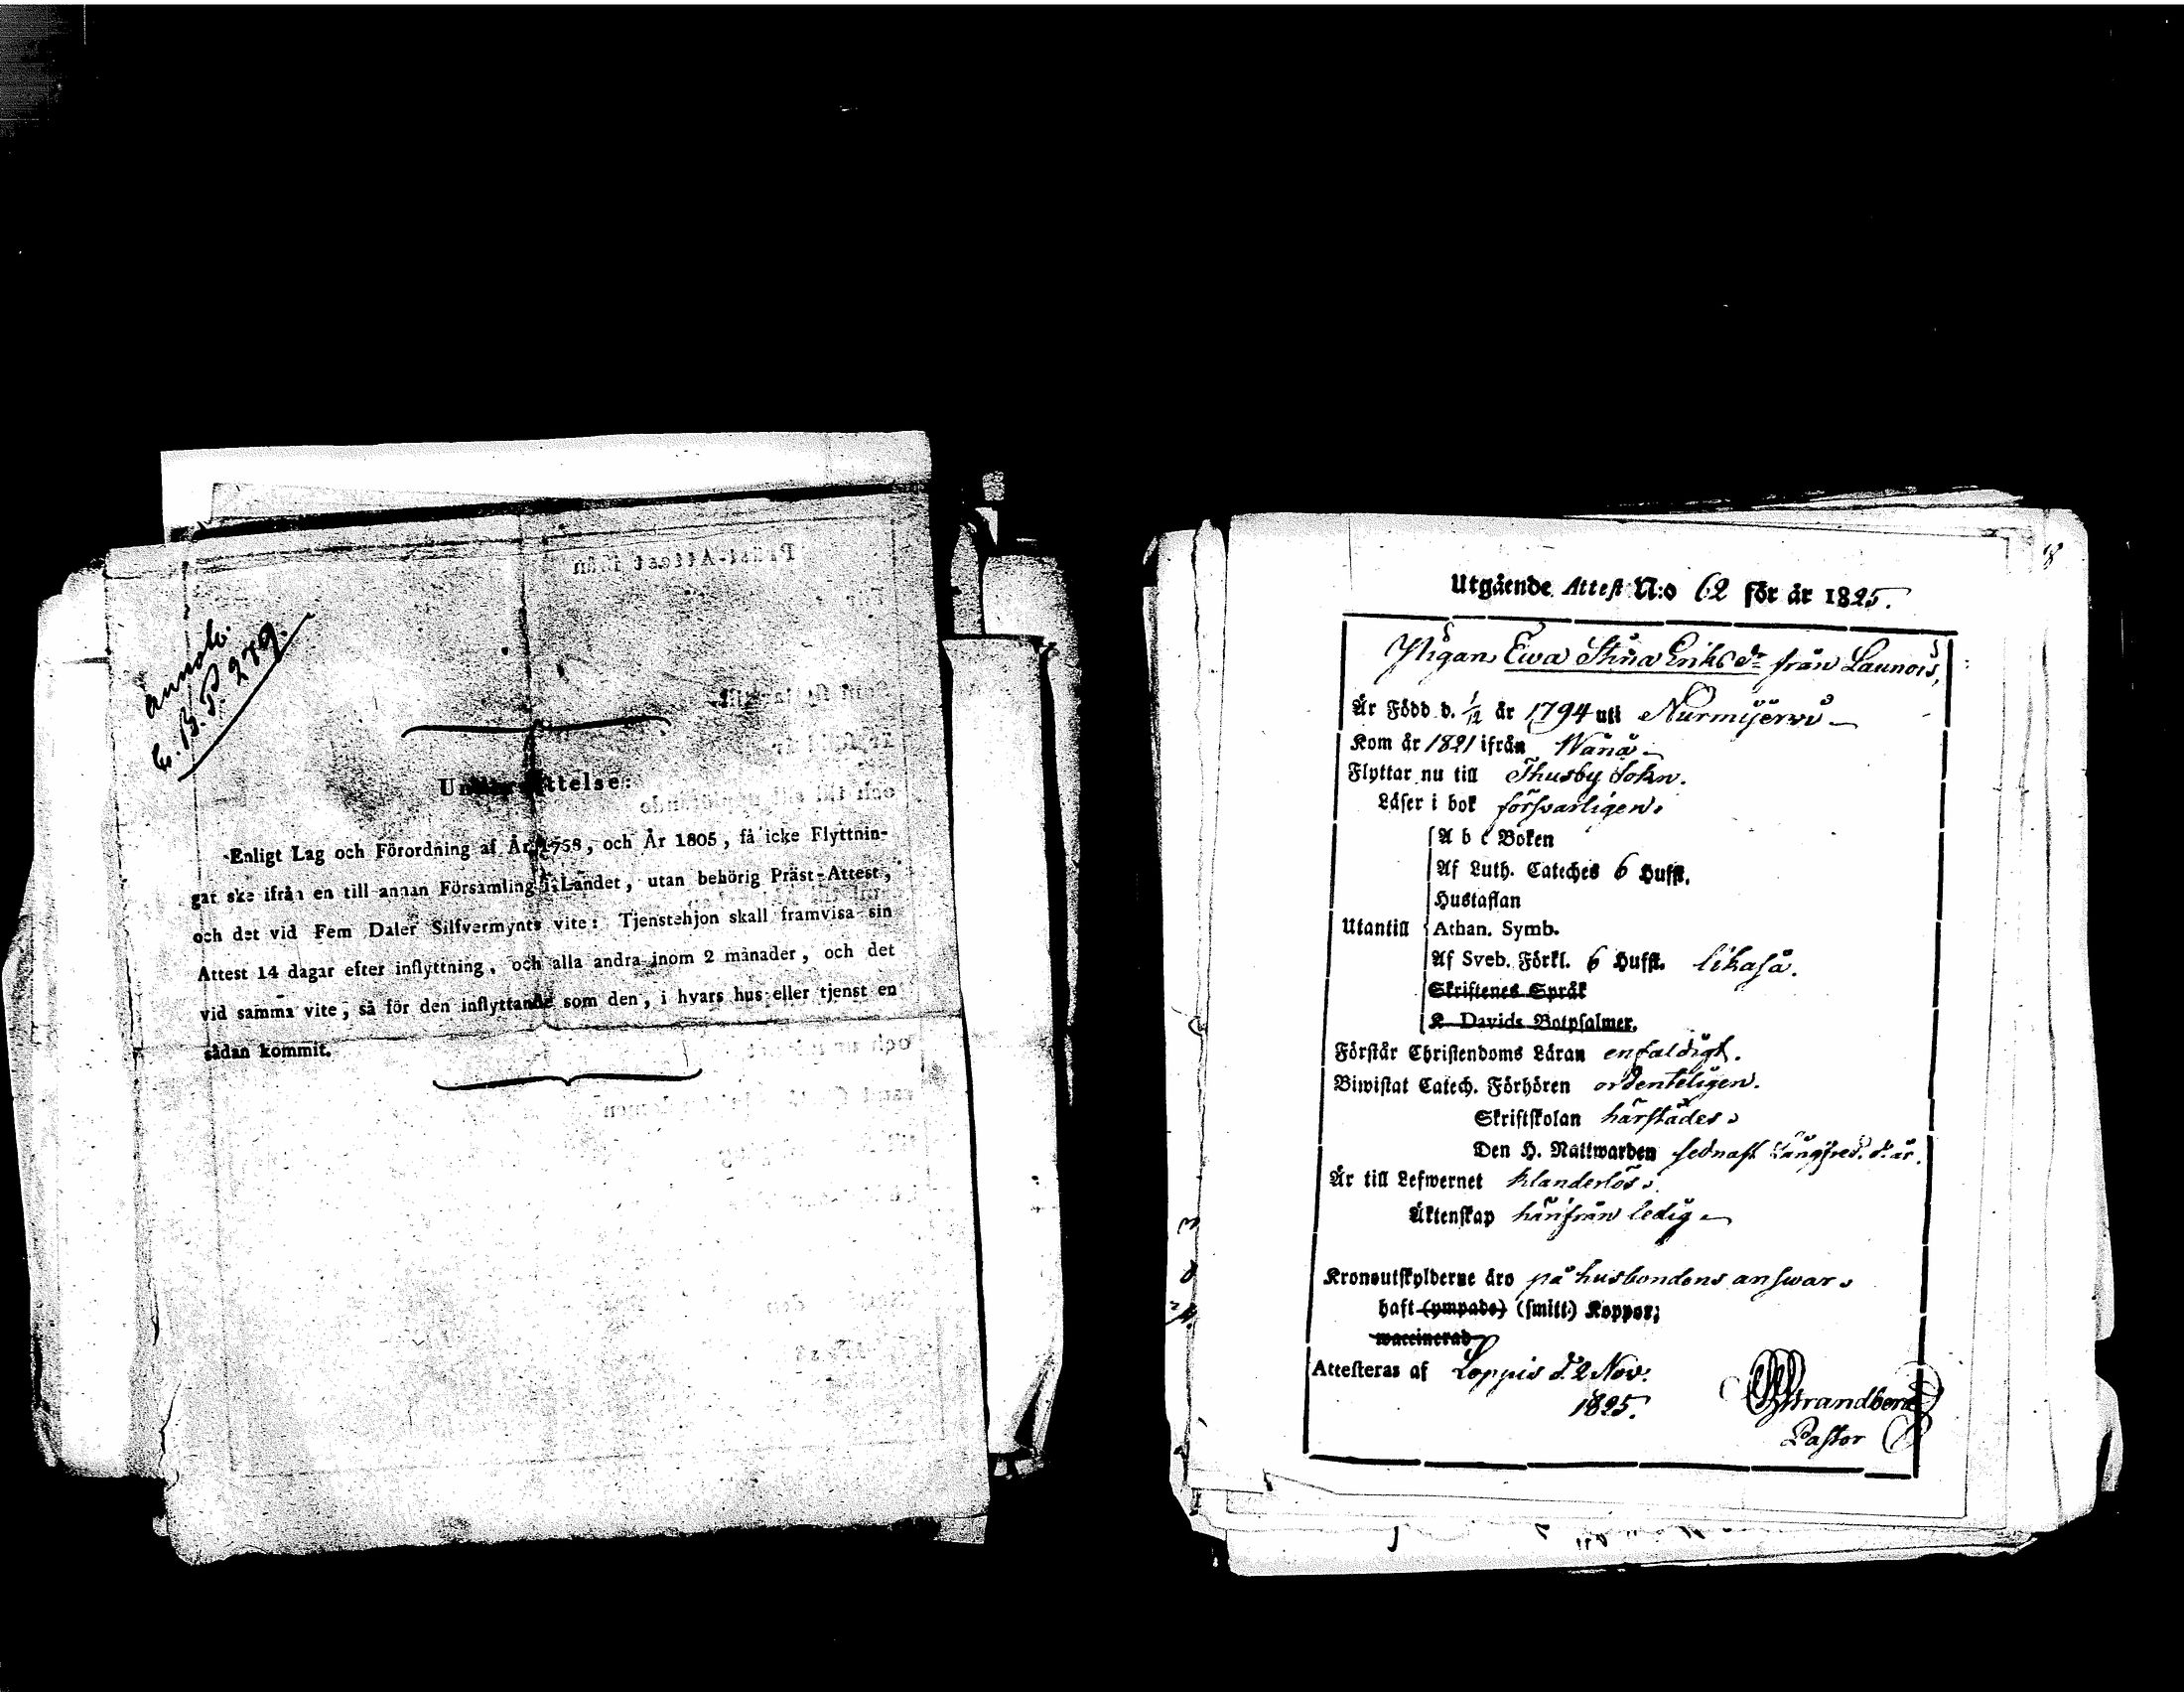 annot.
C. B. P. 279.
Underrättelse:
Enligt Lag och Förordning af År 1758, och År 1805, få icke Flyttnin-
gar ske ifrån en till annan Församling i Landet, utan behörig Präst-Attest,
och det vid Fem Daler Silfvermynts vite: Tjenstehjon skall framvisa sin
Attest 14 dagar efter inflyttning, och alla andra inom 2 månader, och det
vid samma vite, så för den inflyttande som den, i hvars hus eller tjenst en
sådan kommit.
Utgående Attest N:o 62 för år 1825.
Pigan Ewa Stina Eriksdr från Launois,
Är Född d. 1/12 år 1794 uti Nurmijerwi
Kom år 1821 ifrån Wånå
Flyttar nu till Thusby Sokn.
Läser i bok försvarligen.
A b c Boken
Af Luth. Cateches 6 Hufst.
Hustaflan
Utantill Athan. Symb.
Af Sveb. Förkl. 6 Hufst. likaså.
Skriftenes Språk
K. Davids Botpsalmer.
Förstår Christendoms Läran enfaldigt.
Biwistat Catech. Förhören ordenteligen.
Skriftskolan härstädes.
Den H. Nattwarden sednast Långfred. d. år.
Är till Lefwernet klanderlös.
Äktenskap härifrån ledig
Kronoutskylderne äro på husbondens answar.
haft (ympade) (smitt.) Koppor;
waccinerad
Attesteras af Loppis d. 2 Nov.
1825. Strandberg
Pastor